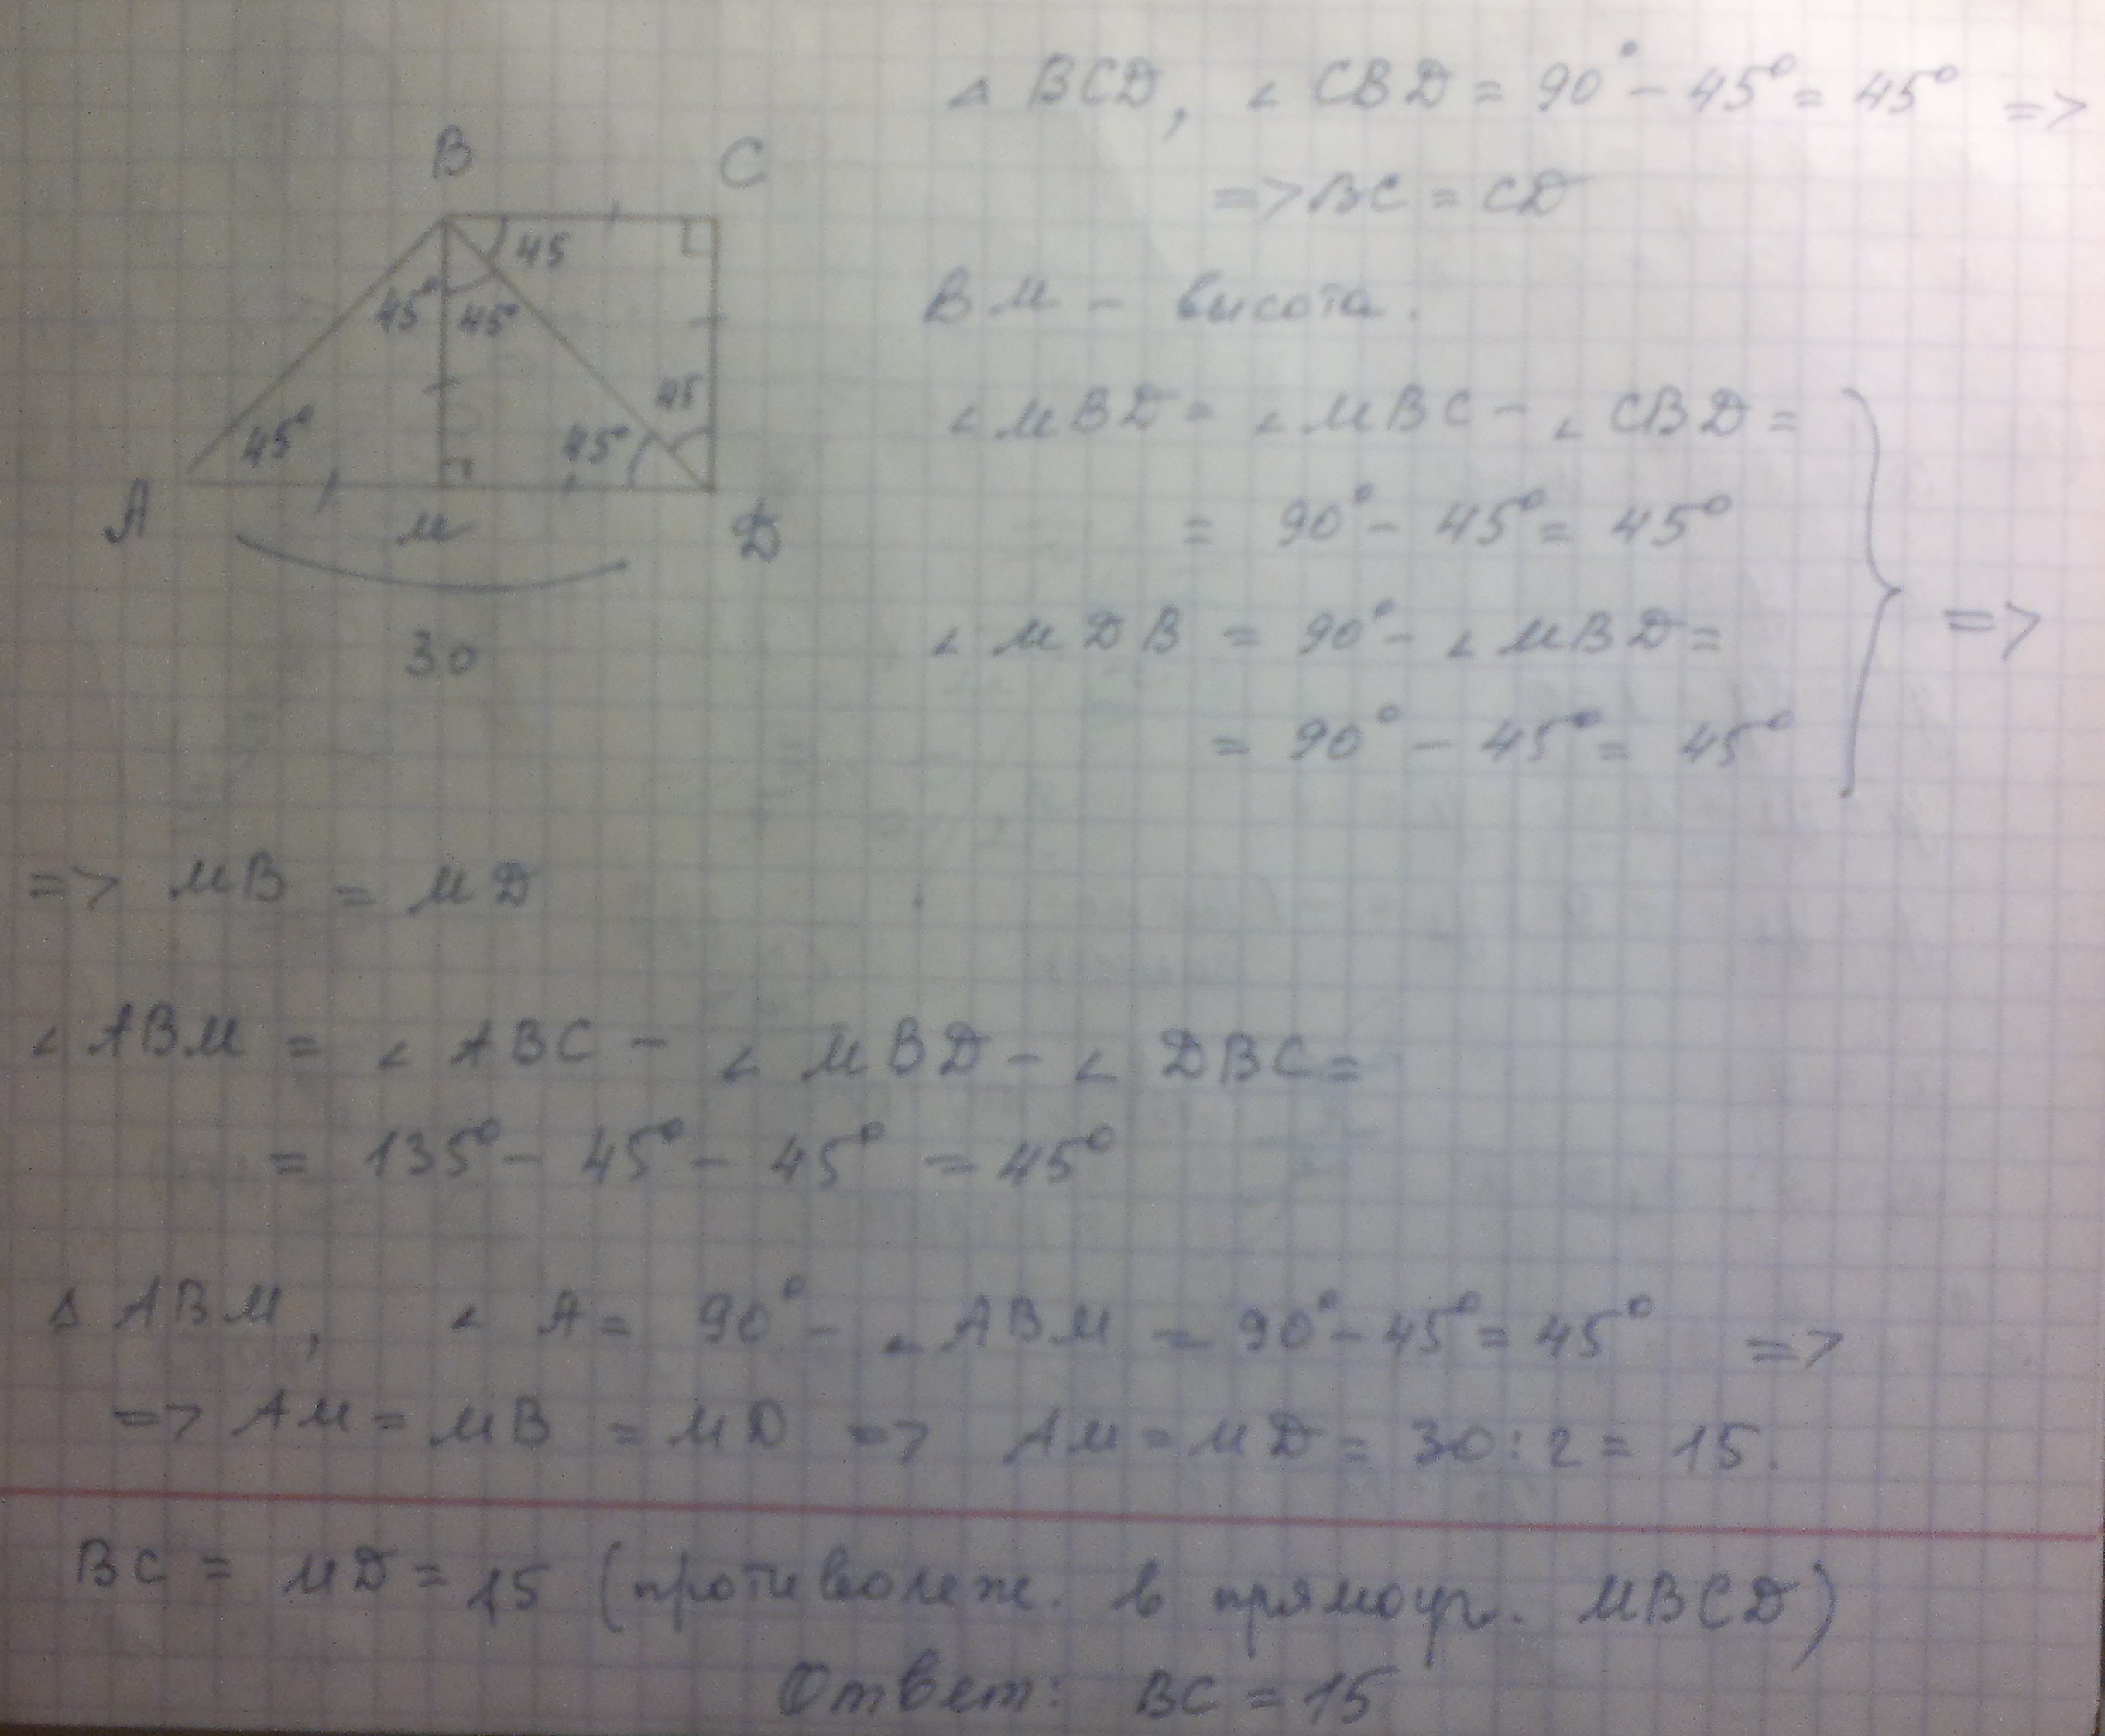 B C
45
45° 45°
45
45° 45°
A M D
30
△ BCD, ∠ CBD = 90° - 45° = 45° =>
=> BC = CD
BM - высота.
∠ MBD = ∠ MBC - ∠ CBD =
= 90° - 45° = 45°
∠ MDB = 90° - ∠ MBD =
= 90° - 45° = 45°
=>
=> MB = MD
∠ ABM = ∠ ABC - ∠ MBD - ∠ DBC =
= 135° - 45° - 45° = 45°
△ ABM, ∠ A = 90° - ∠ ABM = 90° - 45° = 45° =>
=> AM = MB = MD => AM = MD = 30 : 2 = 15.
BC = MD = 15 (противолеж. в прямоуг. MBCD)
Ответ: BC = 15